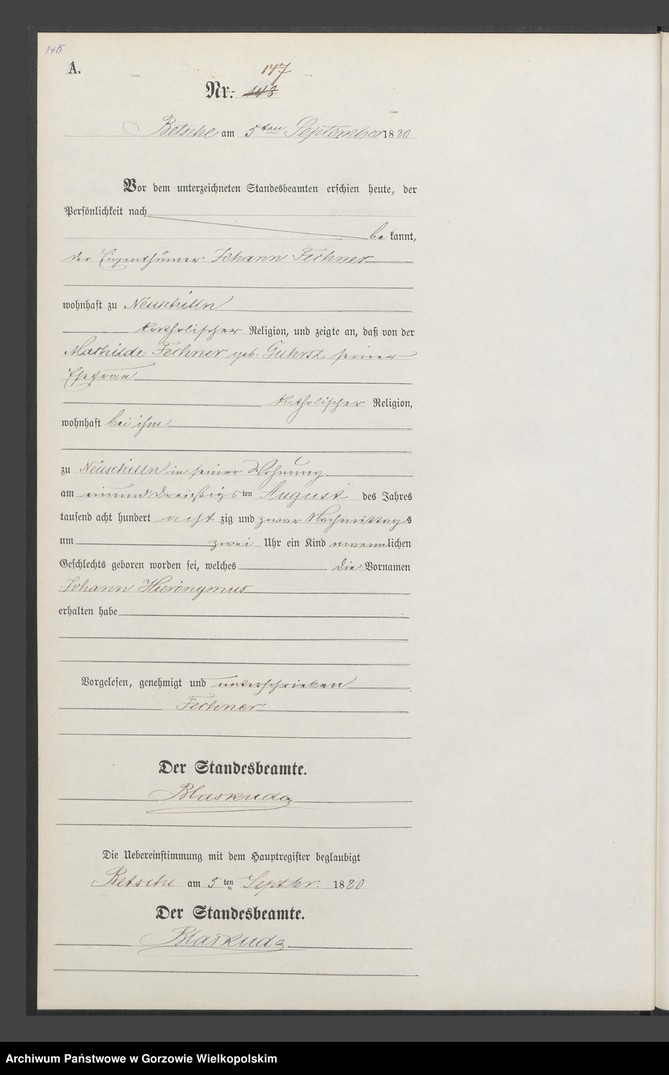 146
A.
147
Nr. 148
Betsche am 5ten September 1880
Vor dem unterzeichneten Standesbeamten erschien heute, der
Persönlichkeit nach
be kannt,
der Eigenthümer Johann Fechner
wohnhaft zu
katholischer Religion, und zeigte an, daß von der
Mathilde Fechner geb. seiner
Ehefrau
katholischer Religion,
wohnhaft bei ihm
zu in seiner Wohnung
am einunddreißigsten August des Jahres
tausend acht hundert acht zig und zwar Nachmittags
um zwei Uhr ein Kind männlichen
Geschlechts geboren worden sei, welches die Vornamen
Johann Hieronymus
erhalten habe
Vorgelesen, genehmigt und unterschrieben
Fechner
Der Standesbeamte.
Blaskuda
Die Uebereinstimmung mit dem Hauptregister beglaubigt
Betsche am 5ten Septbr. 1880
Der Standesbeamte.
Blaskuda
Archiwum Państwowe w Gorzowie Wielkopolskim